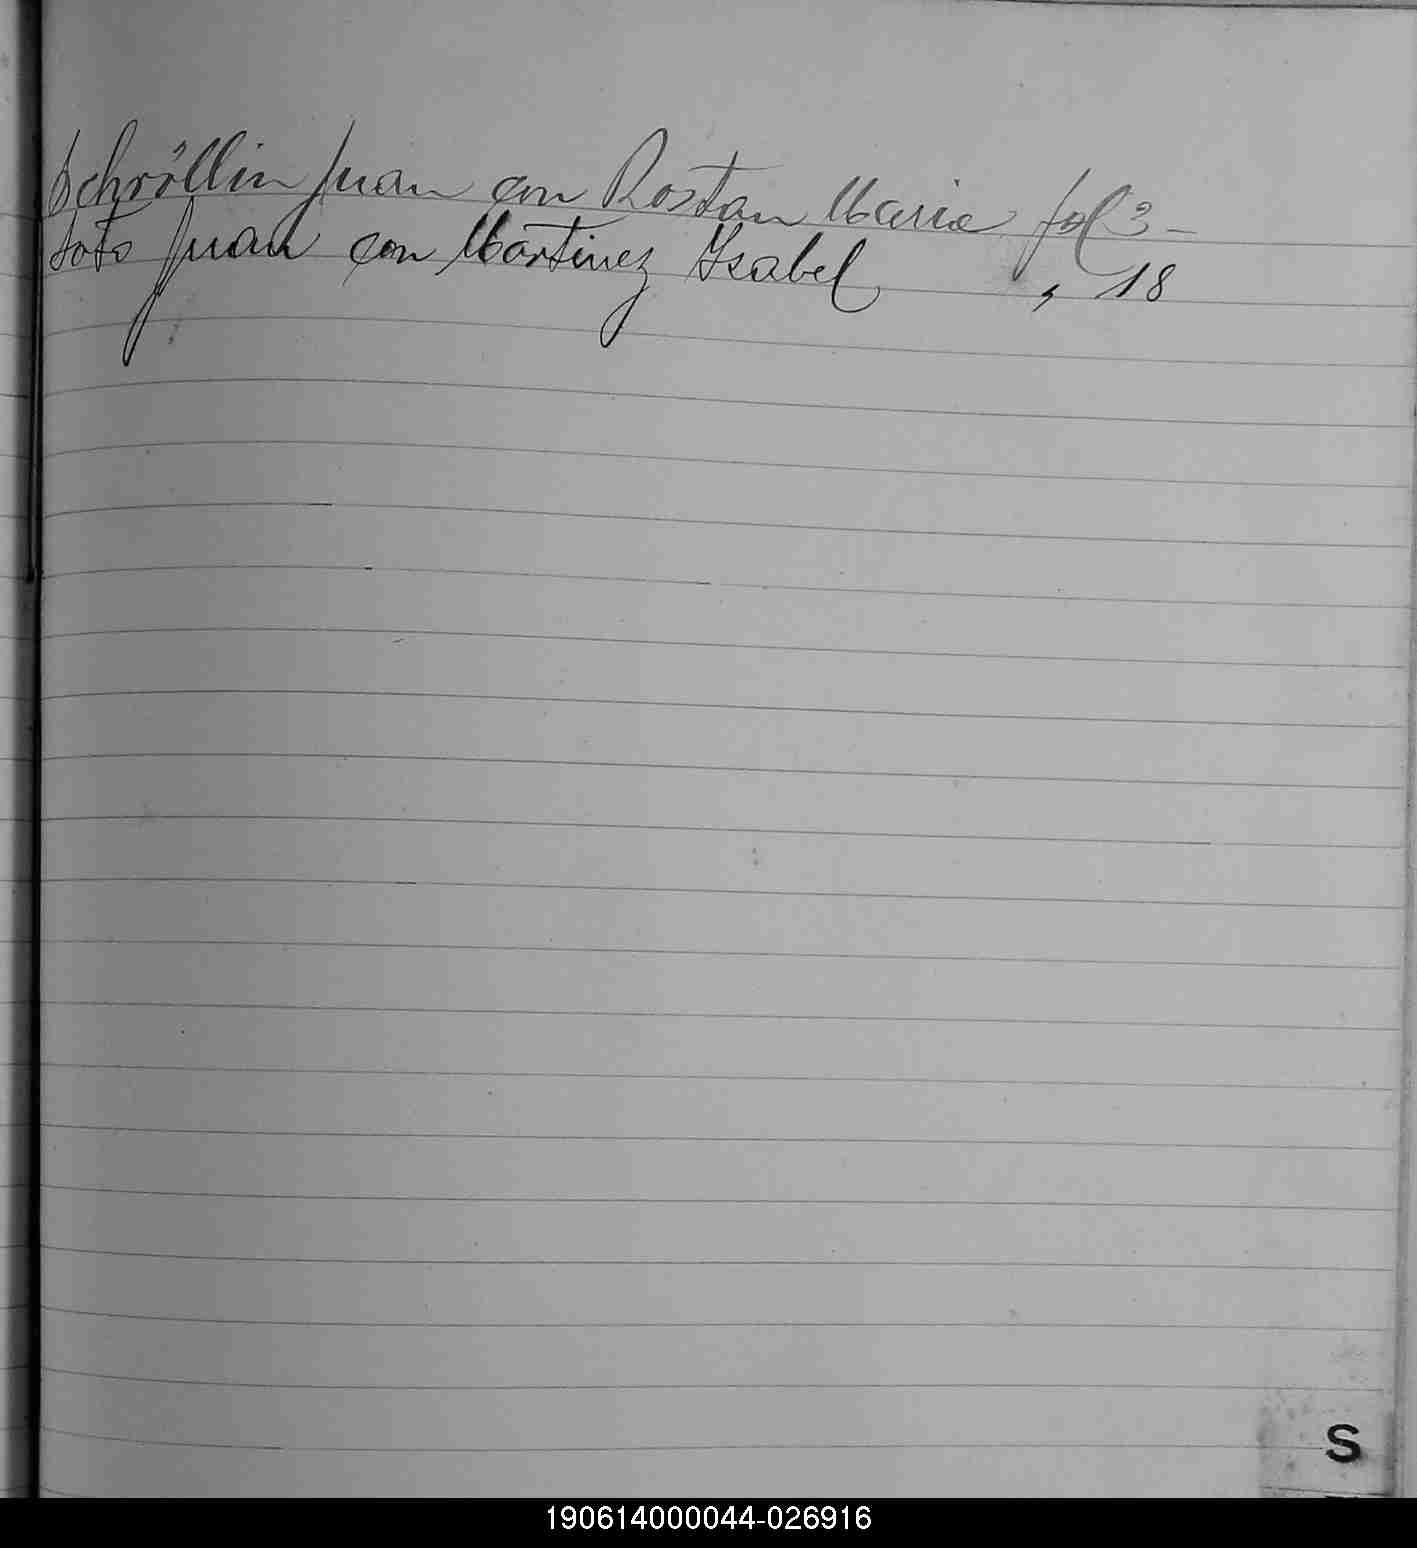 Schröllin Juan con Rostan Maria fol 3 -
Soto Juan con Martinez Isabel , 18
S
190614000044-026916